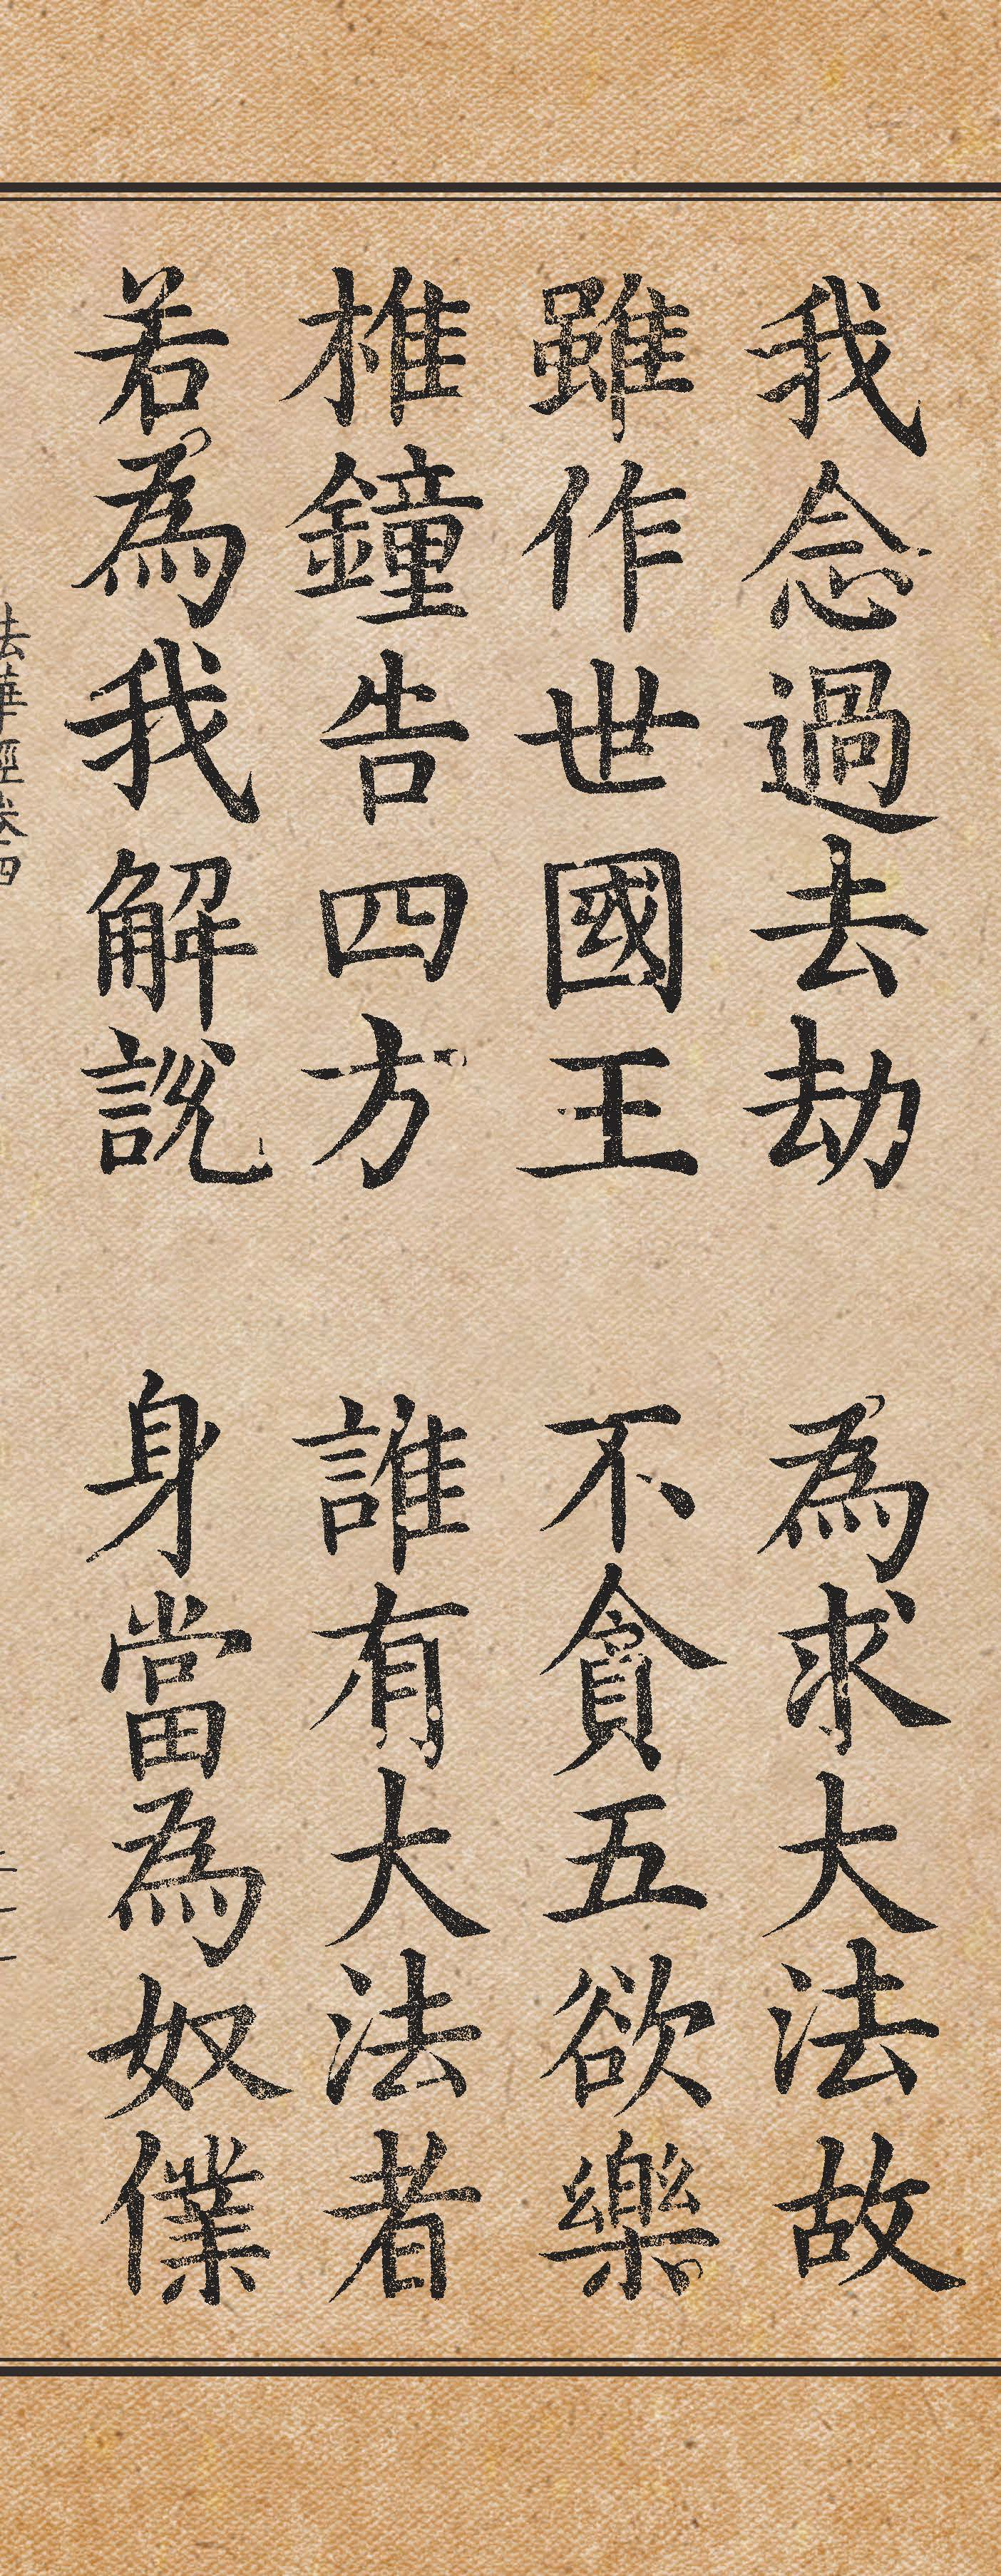 我念過去劫 為求大法故
雖作世國王 不貪五欲樂
椎鐘告四方 誰有大法者
若為我解說 身當為奴僕
法華經卷四